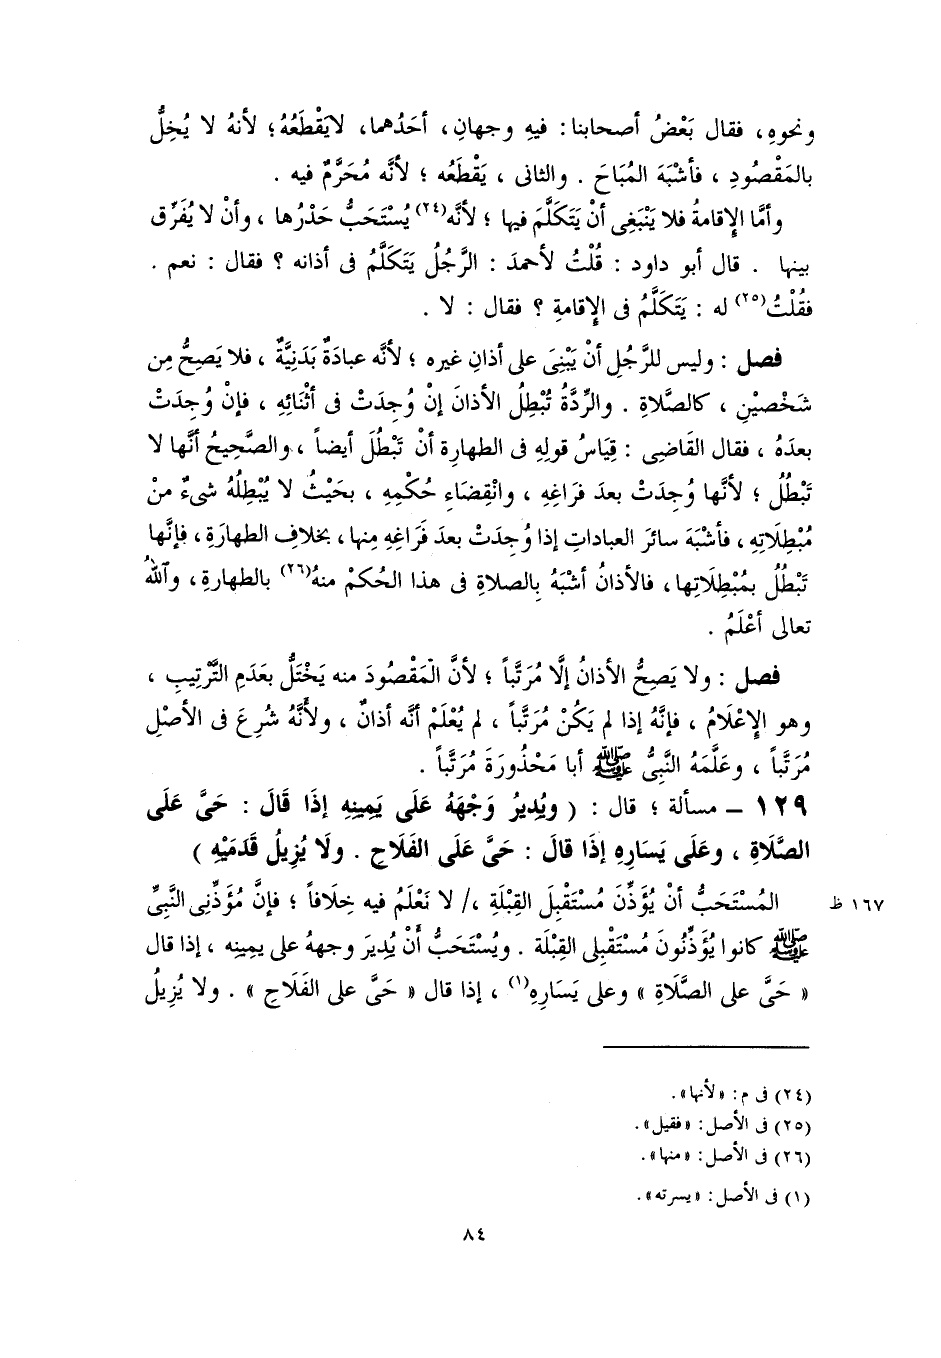 ونحوِهِ، فقال بَعْضُ أصحابنا: فيهِ وجهانِ، أحَدُهما، لايَقْطَعُهُ؛ لأنهُ لا يُخِلُّ
بالمَقْصُودِ ، فأشْبَهَ المُبَاحَ . والثانى ، يَقْطَعُه ؛ لأنَّه مُحَرَّمٌ فيه .
وأمَّا الإِقامةُ فلا يَنْبَغِى أنْ يَتَكَلَّمَ فيها ؛ لأنَّه(٢٤) يُسْتَحَبُّ حَدْرُها ، وأنْ لا يُفَرِّق
بينها . قال أبو داود : قُلْتُ لأحمدَ : الرَّجُلُ يَتَكَلَّمُ فى أذانه ؟ فقال : نعم .
فقُلْتُ(٢٥) له : يَتَكَلَّمُ فى الإِقامةِ ؟ فقال : لا .
فصل : وليس للرَّجُلِ أنْ يَبْنِىَ على أذانِ غيره ؛ لأنَّه عبادَةٌ بَدَنِيَّةٌ ، فلا يَصِحُّ مِن
شَخْصيْنِ ، كالصَّلاةِ . والرِّدَّةُ تُبْطِلُ الأذانَ إنْ وُجِدَتْ فى أثْنَائِهِ ، فإنْ وُجِدَتْ
بعدَهُ ، فقال القَاضِى : قِيَاسُ قولِهِ فى الطهارِة أنْ تَبْطُلَ أيضاً ، والصَّحِيحُ أنَّها لا
تَبْطُلُ ؛ لأنَّها وُجِدَتْ بعدَ فرَاغِهِ ، وانْقِضَاءِ حُكْمِهِ ، بحَيْثُ لا يُبْطِلُهُ شىءٌ منْ
مُبْطِلَاتِهِ ، فأشْبَهَ سائرَ العباداتِ إذا وُجِدَتْ بعدَ فَرَاغِهِ مِنها، بخلافِ الطهارَةِ ، فإنَّها
تَبْطُلُ بمُبْطِلَاتِها، فالأذانُ أشْبَهُ بالصلاةِ فى هذا الحُكمْ منهُ(٢٦) بالطهارةِ، واللهُ
تعالى أعْلَمُ .
فصل : ولا يَصِحُّ الأذانُ إلَّا مُرَتَّباً ؛ لأنَّ الْمَقْصُودَ منه يَخْتَلُّ بعَدَمِ التَّرْتِيبِ ،
وهو الإِعْلَامُ ، فإنَّهُ إذا لم يَكُنْ مُرَتَّباً ، لم يُعْلَمْ أنَّه أذانٌ ، ولأنَّهُ شُرِعَ فى الأصْلِ
مُرَتَّباً ، وعَلَّمَهُ النَّبِىُّ ﷺ أبا مَحْذُورَةَ مُرَتَّباً .
١٢٩ – مسألة ؛ قال : ( ويُدِيرُ وَجْهَهُ عَلَى يَمِينِهِ إذَا قَالَ : حَىَّ عَلَى
الصَّلَاةِ ، وعَلَى يَسَارِهِ إذَا قالَ : حَىَّ عَلَى الفَلَاحِ . ولَا يُزِيلُ قَدَمَيْهِ )
المُسْتَحَبُّ أنْ يُؤَذِّنَ مُسْتَقْبِلَ القِبْلَةِ ،/ لا نَعْلَمُ فيه خِلَافاً ؛ فإنَّ مُؤَذِّنِى النَّبِىِّ
١٦٧ ظ
ﷺ كانوا يُؤَذِّنُونَ مُسْتَقْبِلِى القِبْلَة . ويُسْتَحَبُّ أنْ يُدِيرَ وجههُ على يمِينِه ، إذا قال
« حَىَّ على الصَّلَاةِ » وعلى يَسَارِهِ(١) ، إذا قال « حَىَّ على الفَلَاحِ » . ولا يُزِيلُ
(٢٤) فى م : «لأنها».
(٢٥) فى الأصل : «فقيل».
(٢٦) فى الأصل : «منها».
(١) فى الأصل : «يسرته».
٨٤